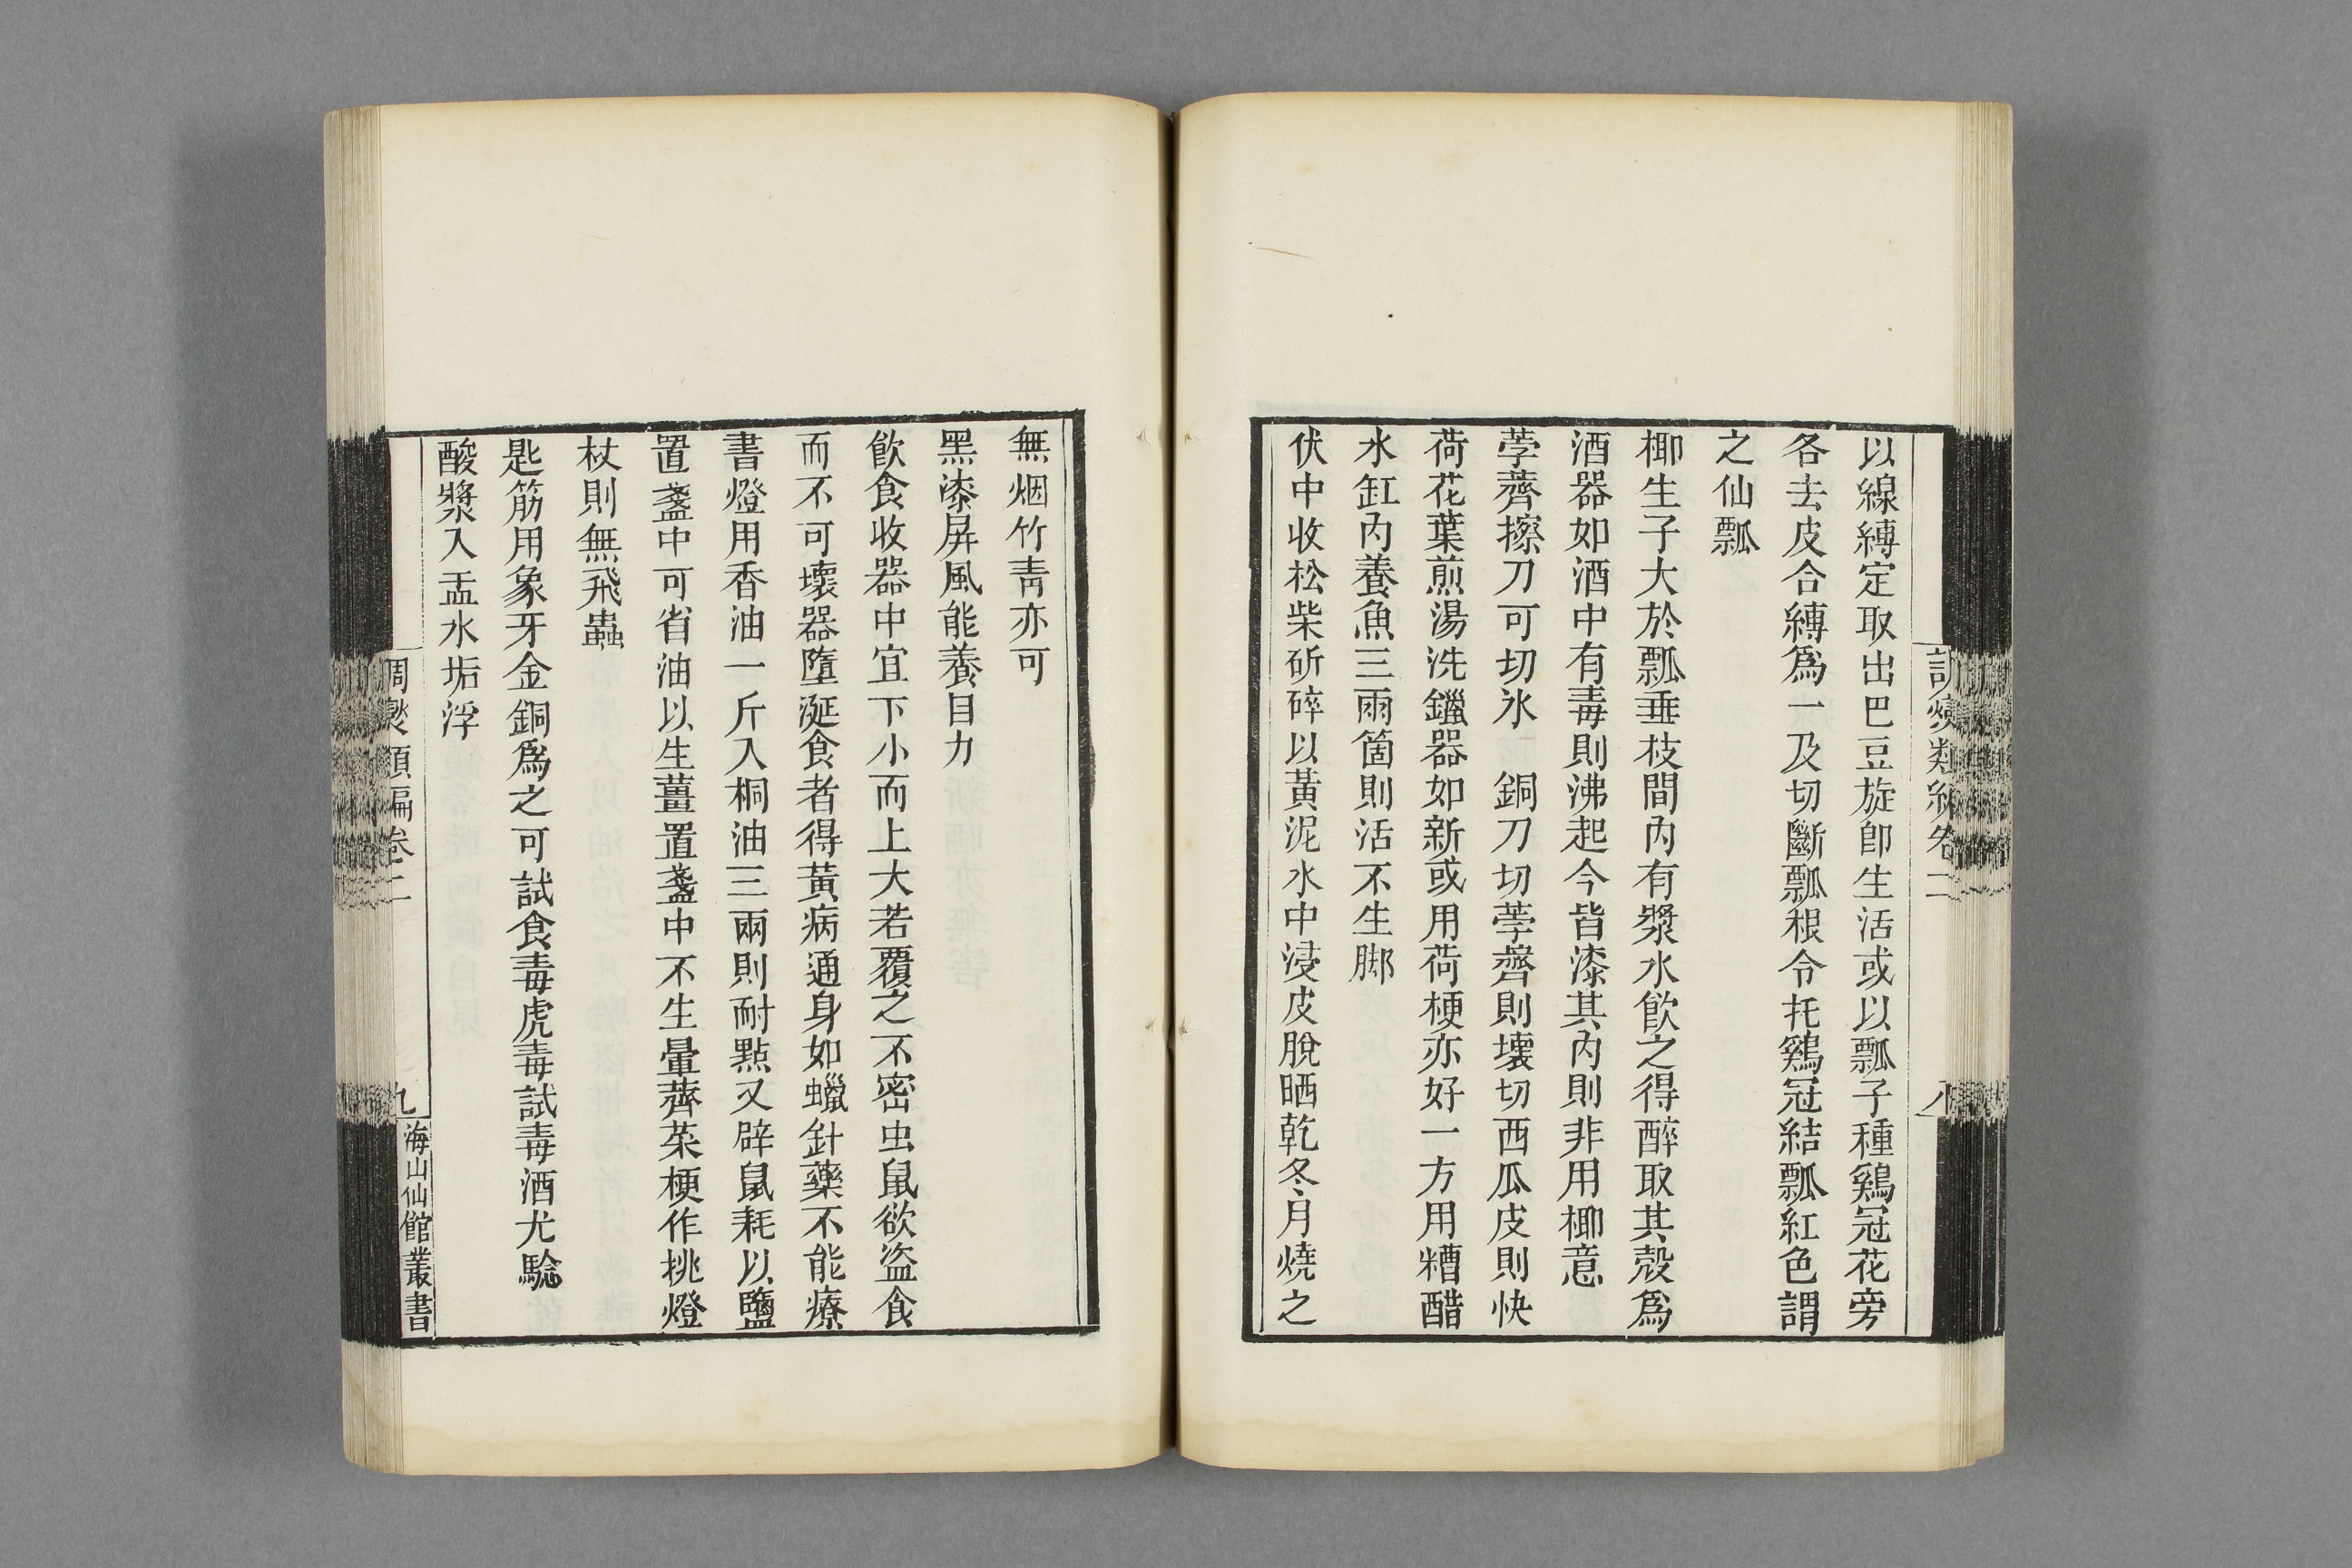 以線縛定取出巴豆旋卽生活或以瓢子種鷄冠花旁
各去皮合縛爲一及切斷瓢根令托鷄冠結瓢紅色謂
之仙瓢
椰生子大於瓢垂枝間內有漿水飮之得醉取其殼爲
酒器如酒中有毒則沸起今皆漆其內則非用椰意
荸薺擦刀可切氷 銅刀切荸薺則壞切西瓜皮則快
荷花葉煎湯洗鑞器如新或用荷梗亦好一方用糟醋
水缸內養魚三兩箇則活不生脚
伏中收松柴斫碎以黃泥水中浸皮脫晒乾冬月燒之
無烟竹靑亦可
黑漆屏風能養目力
飮食收器中宜下小而上大若覆之不密虫鼠欲盜食
而不可壞器墮涎食者得黃病通身如蠟針藥不能療
書燈用香油一斤入桐油三兩則耐點又辟鼠耗以鹽
置盞中可省油以生薑置盞中不生暈薺菜梗作挑燈
杖則無飛蟲
匙筋用象牙金銅爲之可試食毒虎毒試毒酒尤驗
酸漿入盂水垢浮
調燮類編卷二
九
海山仙館叢書